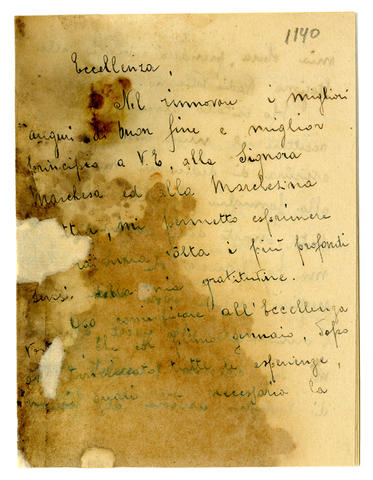 1140
Eccellenza,
Nel rinnovare i migliori
auguri di buon fine e miglior
principio a V. E, alla Signora
Marchesa ed alla Marchesina
mi permetto esprimere
volta i più profondi
sensi della mia gratitudine.
comunicare all'Eccellenza
col primo gennaio, dopo
tratto di esperienze,
quali necessaria la